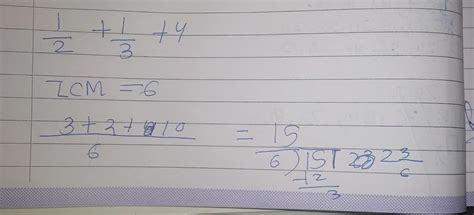 1/2 + 1/3 + 4
LCM = 6
3 + 2 + 10 / 6 = 15
6 ) 15 ( 2 3/6
12
3